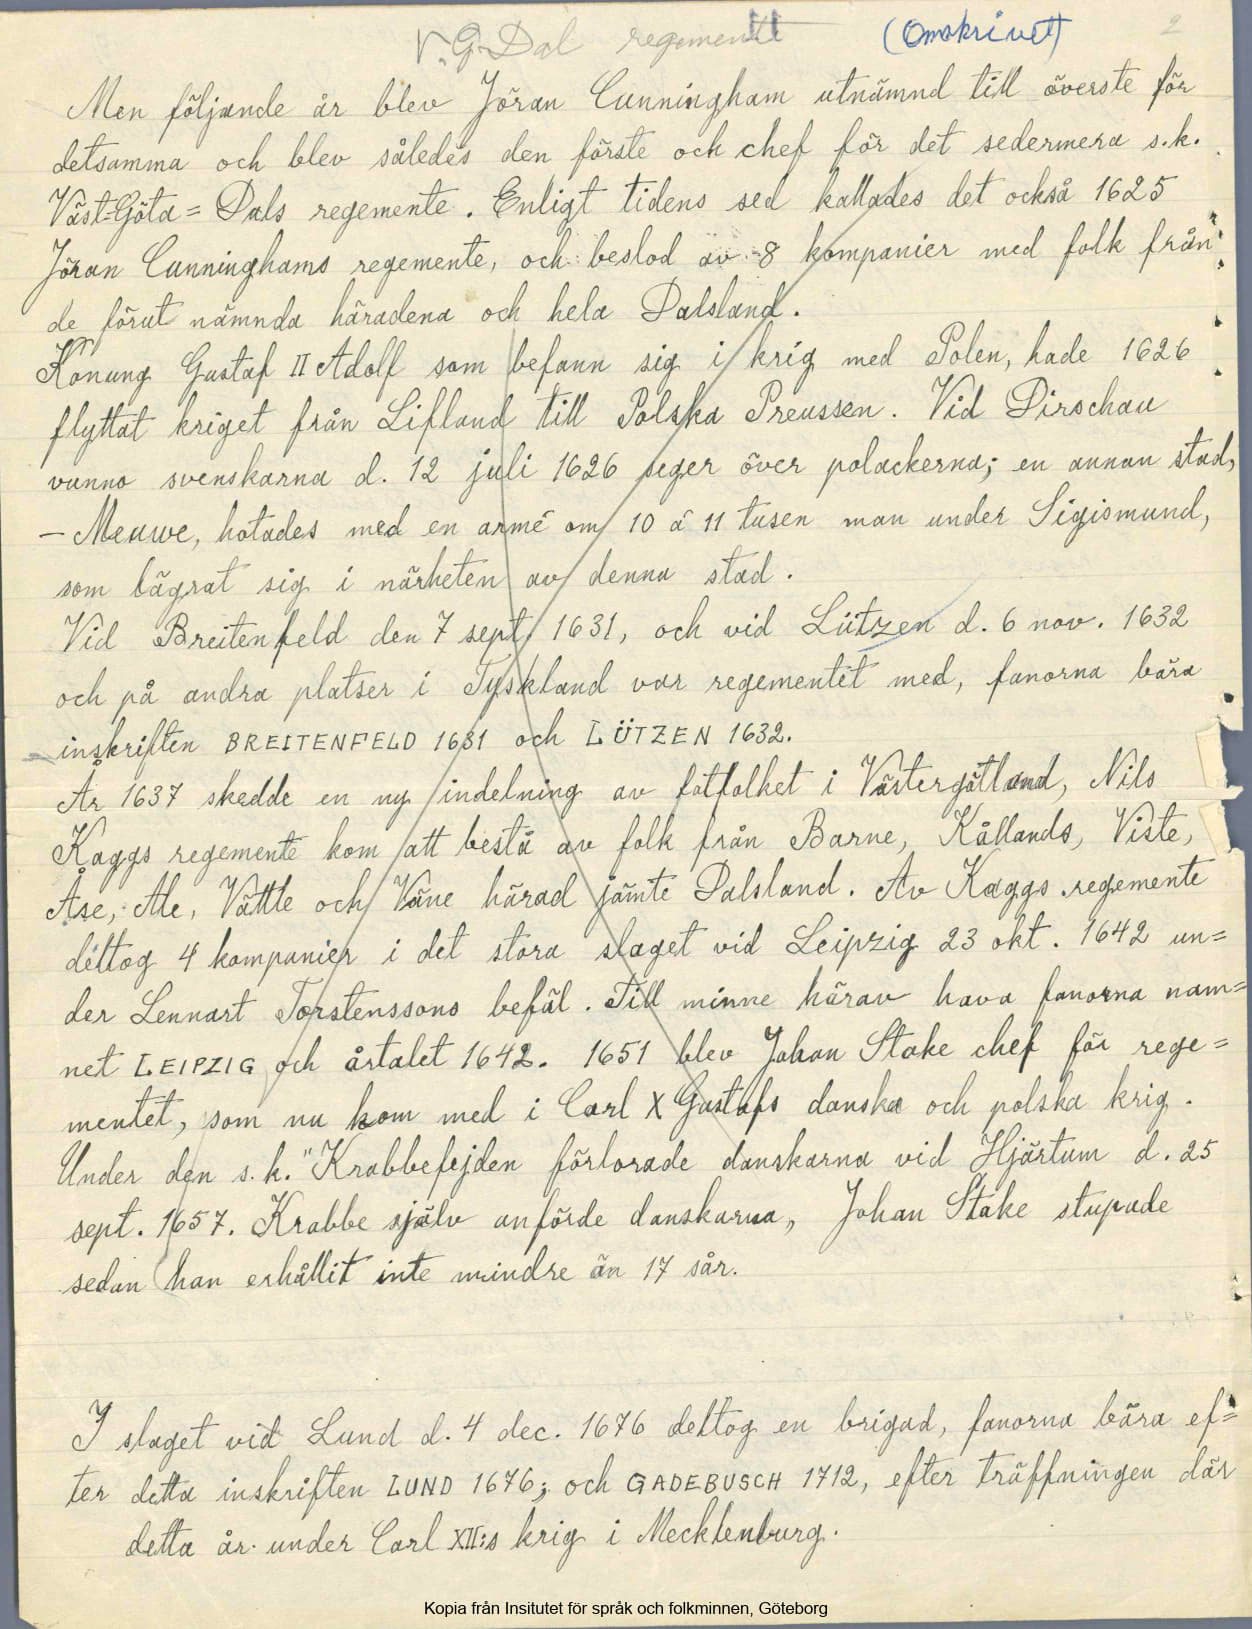 V.G-Dal regemente (Omskrivet) 2
Men följande år blev Jöran Cunningham utnämnd till överste för
detsamma och blev således den förste och chef för det sedermera s.k.
Väst-Göta= Dals regemente. Enligt tidens sed kallades det också 1625
Jöran Cunninghams regemente, och bestod av 8 kompanier med folk från
de förut nämnda häradena och hela Dalsland.
Konung Gustaf II Adolf som befann sig i krig med Polen, hade 1626
flyttat kriget från Lifland till Polska Preussen. Vid Dirschau
vunno svenskarna d. 12 juli 1626 seger över polackerna; en annan stad,
- Meuwe, hotades med en armé om 10 á 11 tusen man under Sigismund,
som lägrat sig i närheten av denna stad.
Vid Breitenfeld den 7 sept. 1631, och vid Lützen d. 6 nov. 1632
och på andra platser i Tyskland var regementet med, fanorna bära
inskriften BREITENFELD 1631 och LÜTZEN 1632.
År 1637 skedde en ny indelning av fotfolket i Västergötland, Nils
Kaggs regemente kom att bestå av folk från Barne, Kållands, Viste,
Åse, Ale, Vättle och Väne härad jämte Dalsland. Av Kaggs regemente
deltog 4 kompanier i det stora slaget vid Leipzig 23 okt. 1642 un=
der Lennart Torstenssons befäl. Till minne härav hava fanorna nam=
net LEIPZIG och årtalet 1642. 1651 blev Johan Stake chef för rege=
mentet, som nu kom med i Carl X Gustafs danska och polska krig.
Under den s.k. "Krabbefejden förlorade danskarna vid Hjärtum d. 25
sept. 1657. Krabbe själv anförde danskarna, Johan Stake stupade
sedan han erhållit inte mindre än 17 sår.
I slaget vid Lund d. 4 dec. 1676 deltog en brigad, fanorna bära ef=
ter detta inskriften LUND 1676; och GADEBUSCH 1712, efter träffningen där
detta år under Carl XII:s krig i Mecklenburg.
Kopia från Insitutet för språk och folkminnen, Göteborg